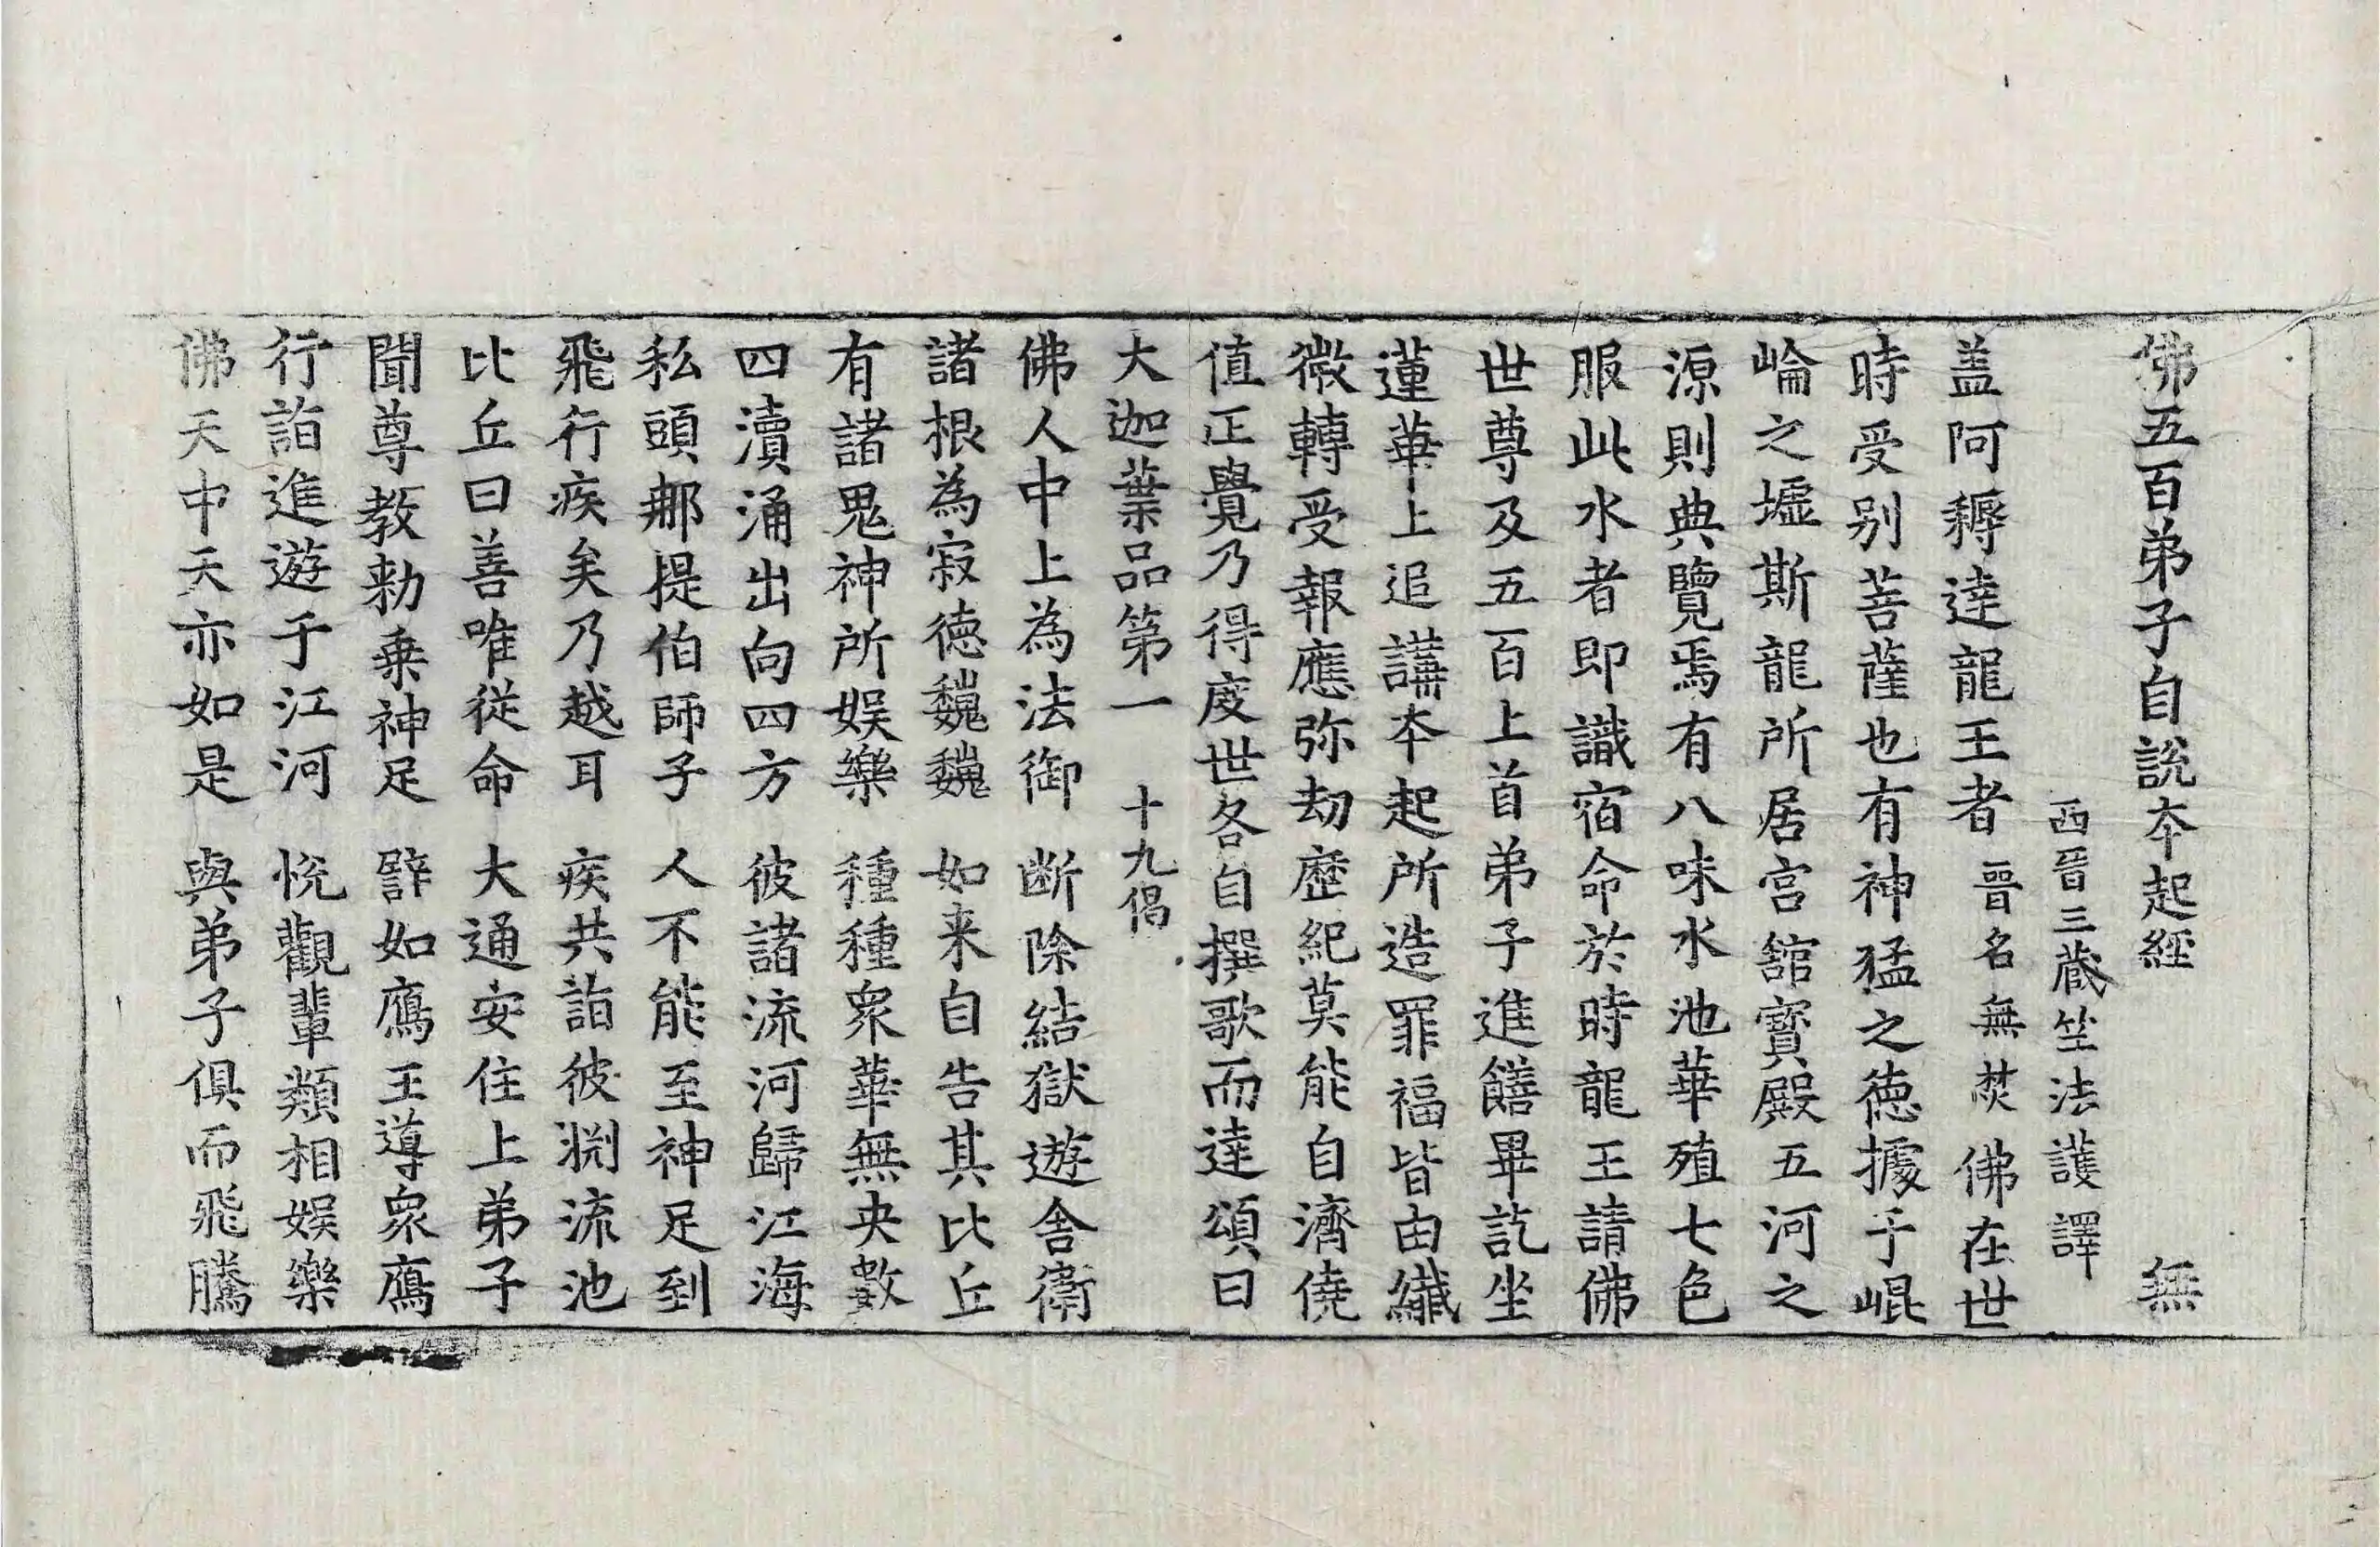 佛五百弟子自說夲起經 無
西晉三藏竺法護譯
盖阿耨逹龍王者晉名無焚佛在世
時受别菩薩也有神猛之德據于崐
崘之墟斯龍所居宫舘寳殿五河之
源則典覽焉有八味水池華殖七色
服此水者即識宿命於時龍王請佛
世尊及五百上首弟子進饍畢訖坐
蓮華上追講夲起所造罪福皆由纎
微轉受報應弥劫歷紀莫能自濟僥
值正覺乃得度世各自撰歌而逹頌曰
大迦葉品第一 十九偈
佛人中上為法御 断除結獄遊舍衛
諸根為寂德巍巍 如来自告其比丘
有諸鬼神所娱樂 種種衆華無央數
四瀆涌出向四方 彼諸流河歸江海
私頭那提伯師子 人不能至神足到
飛行疾矣乃越耳 疾共詣彼渊流池
比丘曰善唯從命 大通安住上弟子
聞尊教勅乗神足 譬如鴈王導衆鴈
行詣進遊于江河 悅觀輩類相娱樂
佛天中天亦如是 與弟子俱而飛騰